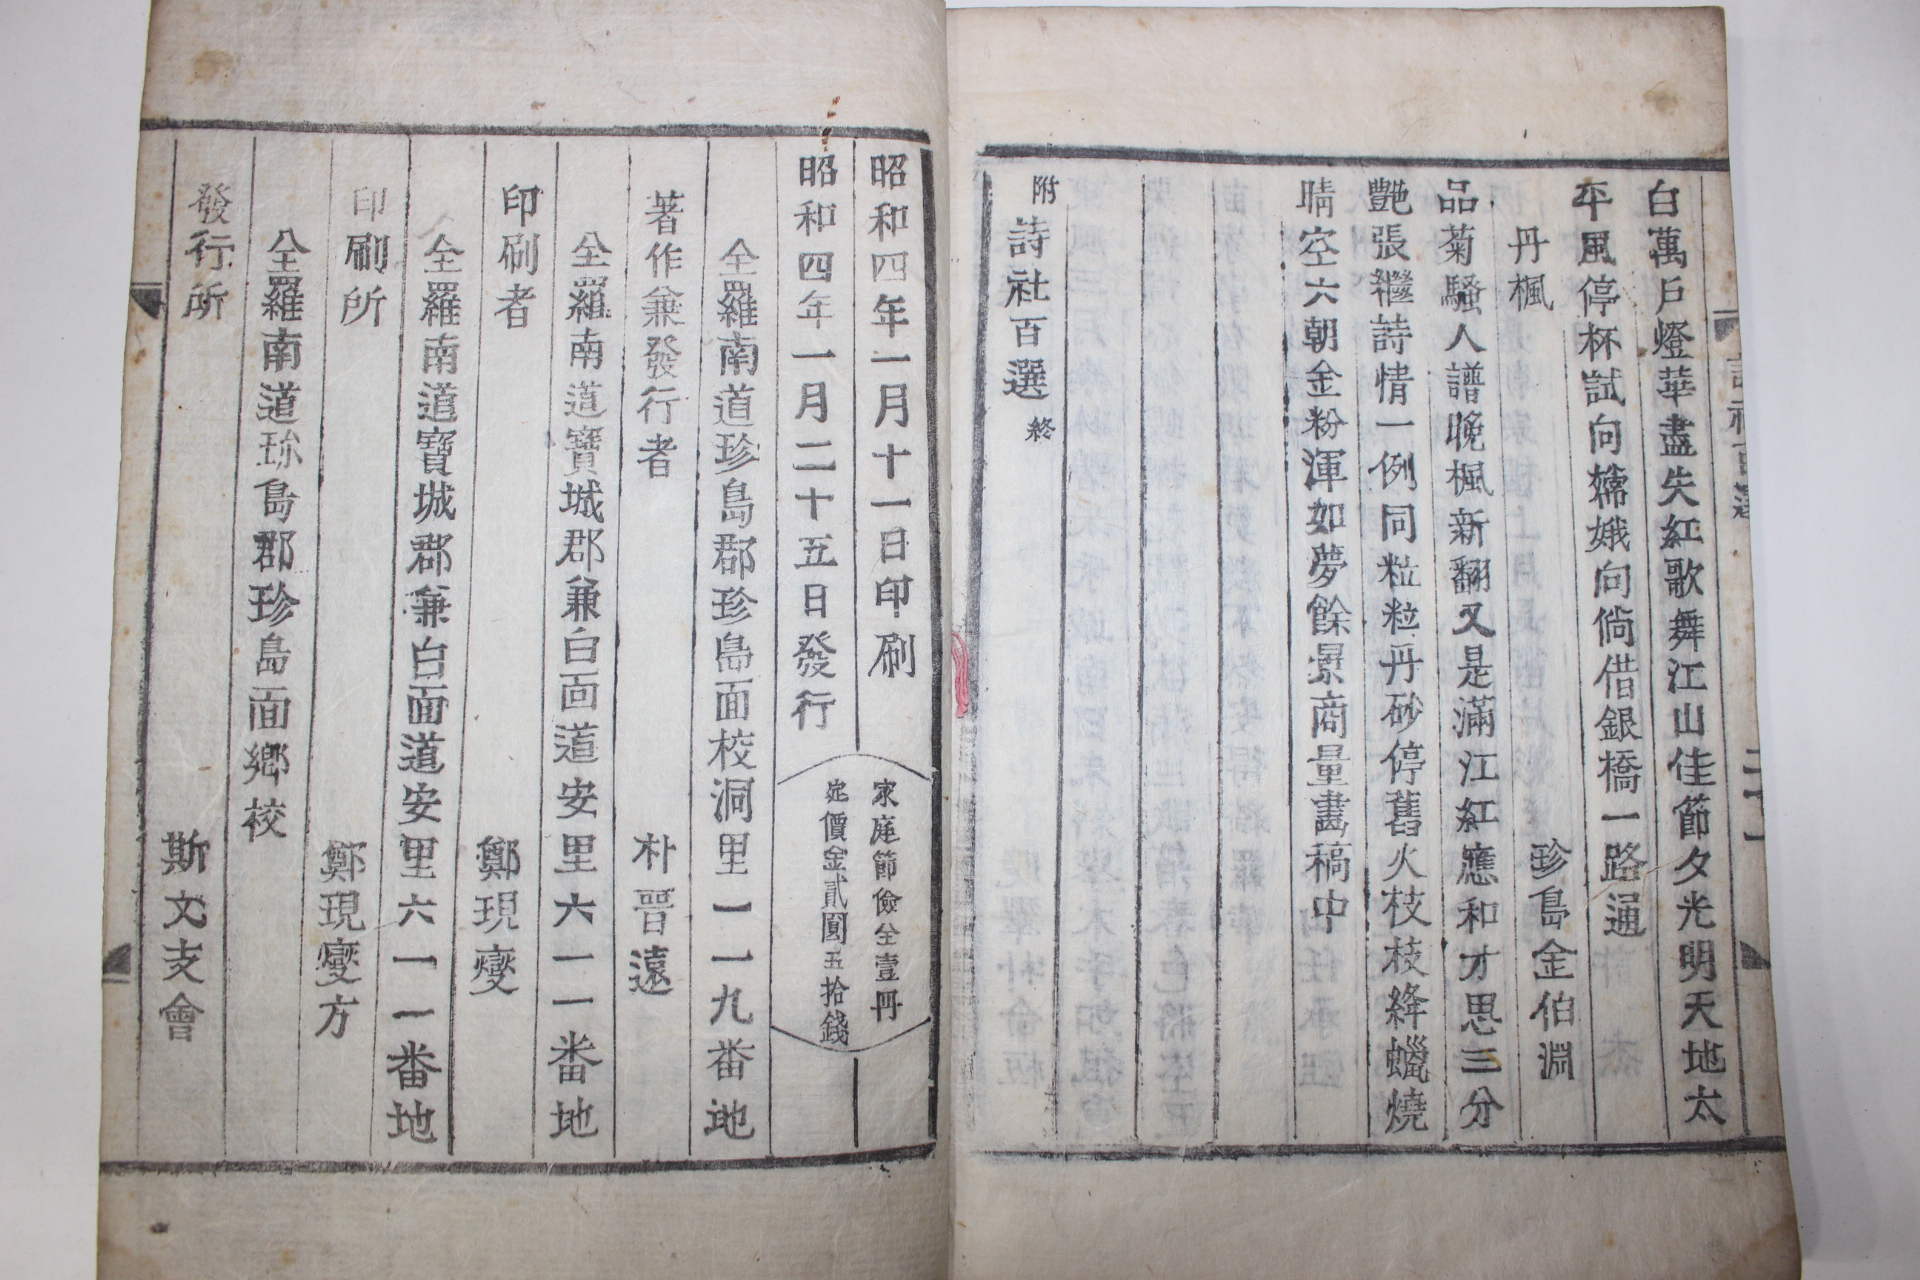 白萬戶燈華盡失紅歌舞江山佳節夕光明天地太
平風停杯試向孀娥向倘借銀橋一路通
丹楓 珍島金伯淵
品菊騷人譜晚楓新翻又是滿江紅應和才思三分
艶張繼詩情一例同粒粒丹砂停舊火枝枝絳蠟燒
晴空六朝金粉渾如夢餘景商量畵稿中
附詩社百選終
昭和四年一月十一日印刷
昭和四年一月二十五日發行
家庭節儉全壹冊
定價金貳圓五拾錢
全羅南道珍島郡珍島面校洞里一一九番地
著作兼發行者 朴晋遠
全羅南道寶城郡兼白面道安里六一一番地
印刷者 鄭現燮
全羅南道寶城郡兼白面道安里六一一番地
印刷所 鄭現燮方
全羅南道珍島郡珍島面鄉校
發行所 斯文支會